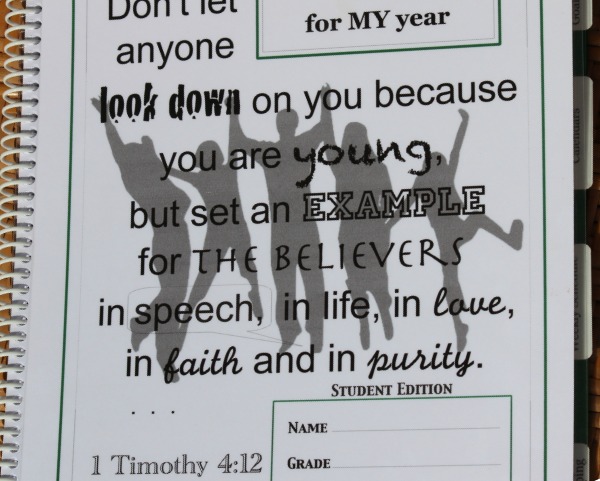 Don't let
for MY year
anyone
look down on you because
you are young,
but set an EXAMPLE
for THE BELIEVERS
in speech, in life, in love,
in faith and in purity.
STUDENT EDITION
. . .
NAME
1 Timothy 4:12
GRADE
Calendars